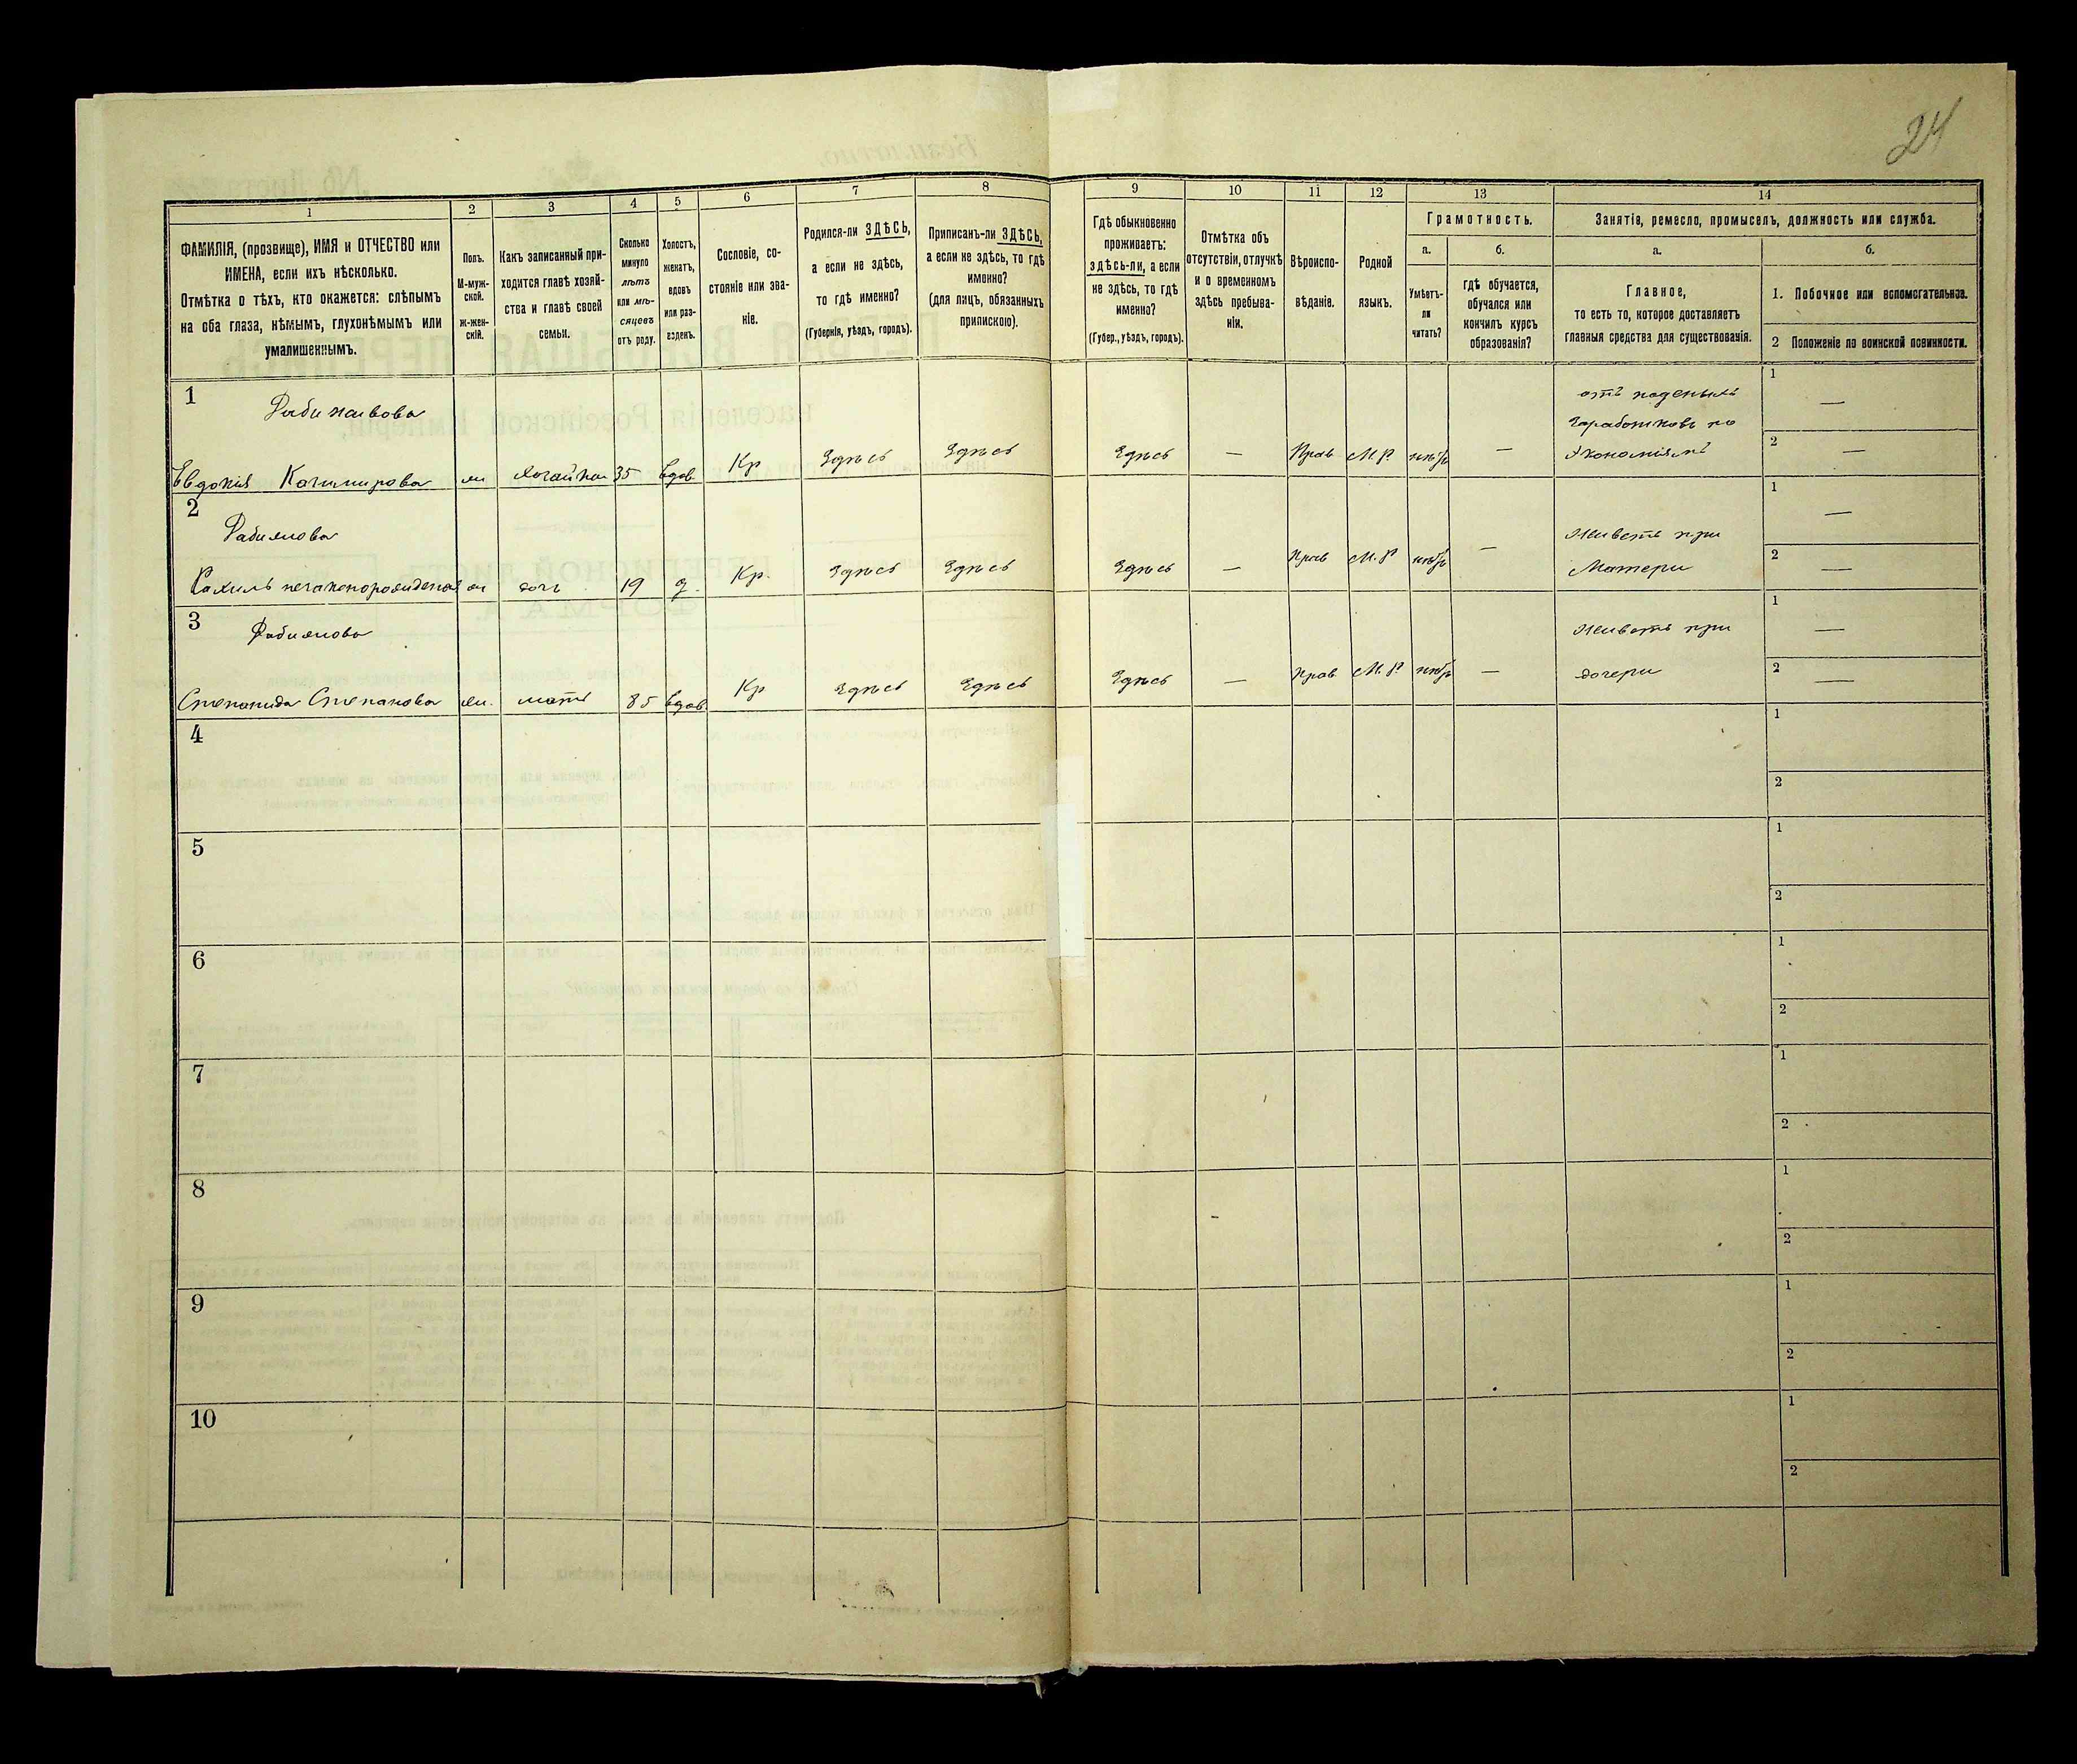 24
1
ФАМИЛІЯ, (прозвище), ИМЯ и ОТЧЕСТВО или
ИМЕНА, если ихъ нѣсколько.
Отмѣтка о тѣхъ, кто окажется: слѣпымъ
на оба глаза, нѣмымъ, глухонѣмымъ или
умалишеннымъ.
2
Полъ.
М-муж-
ской.
ж-жен-
скій.
3
Какъ записанный при-
ходится главѣ хозяй-
ства и главѣ своей
семьи.
4
Сколько
минуло
лѣтъ
или мѣ-
сяцевъ
отъ роду.
5
Холостъ,
женатъ,
вдовъ
или раз-
веденъ.
6
Сословіе, со-
стояніе или зва-
ніе.
7
Родился-ли ЗДѢСЬ,
а если не здѣсь,
то гдѣ именно?
(Губернія, уѣздъ, городъ).
8
Приписанъ-ли ЗДѢСЬ,
а если не здѣсь, то гдѣ
именно?
(для лицъ, обязанныхъ
припискою).
9
Гдѣ обыкновенно
проживаетъ:
здѣсь-ли, а если
не здѣсь, то гдѣ
именно?
(Губер., уѣздъ, городъ).
10
Отмѣтка объ
отсутствіи, отлучкѣ
и о временномъ
здѣсь пребыва-
ніи.
11
Вѣроиспо-
вѣданіе.
12
Родной
языкъ.
13
Грамотность.
а.
Умѣетъ-
ли
читать?
б.
гдѣ обучается,
обучался или
кончилъ курсъ
образованія?
14
Занятіе, ремесло, промыселъ, должность или служба.
а.
Главное,
то есть то, которое доставляетъ
главныя средства для существованія.
б.
1. Побочное или вспомогательное.
2 Положеніе по воинской повинности.
1
Евдокія Качимирова
ж
хозяйка
35
вдов.
Кр
Здѣсь
Здѣсь
Здѣсь
—
Прав
М.Р.
нѣтъ
—
отъ поденыхъ
заработковъ по
Экономіямъ
1
—
2
—
2
Фабиянова
Рахиль незаконорожденая
ж
дочь
19
д.
Кр.
Здѣсь
Здѣсь
Здѣсь
—
Прав
М.Р.
нѣтъ
—
Живетъ при
Матери
1
—
2
—
3
Фабиянова
Степанида Степанова
ж.
мать
85
вдов.
Кр
Здѣсь
Здѣсь
Здѣсь
—
Прав
М.Р.
нѣтъ
—
Живетъ при
дочери
1
—
2
—
4
1
2
5
1
2
6
1
2
7
1
2
8
1
2
9
1
2
10
1
2